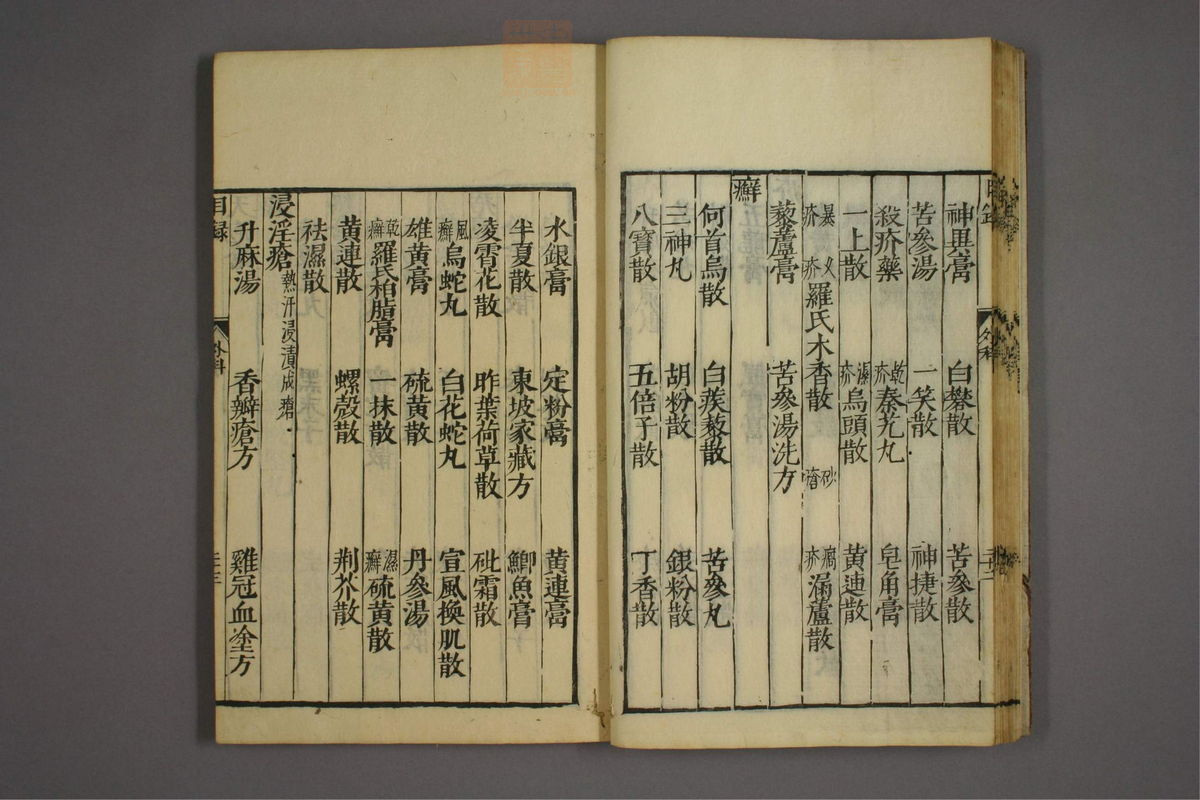 目錄 外科 二十二
神異膏 白礬散 苦參散
苦參湯 一笑散 神捷散
殺疥藥 乾疥秦艽丸 皂角膏
一上散 濕疥烏頭散 黃連散
羅氏木香散 漏蘆散
藜蘆膏 苦參湯洗方
癬
何首烏散 白蒺藜散 苦參丸
三神丸 胡粉散 銀粉散
八寶散 五倍子散 丁香散
水銀膏 定粉膏 黃連膏
半夏散 東坡家藏方 鯽魚膏
凌霄花散 昨葉荷草散 砒霜散
風癬烏蛇丸 白花蛇丸 宣風換肌散
雄黃膏 硫黃散 丹參湯
乾癬羅氏柏脂膏 一抹散 濕癬硫黃散
黃連散 螺殼散 荊芥散
祛濕散
浸淫瘡熱汗浸漬成瘡
升麻湯 香瓣瘡方 雞冠血塗方
目錄 外科